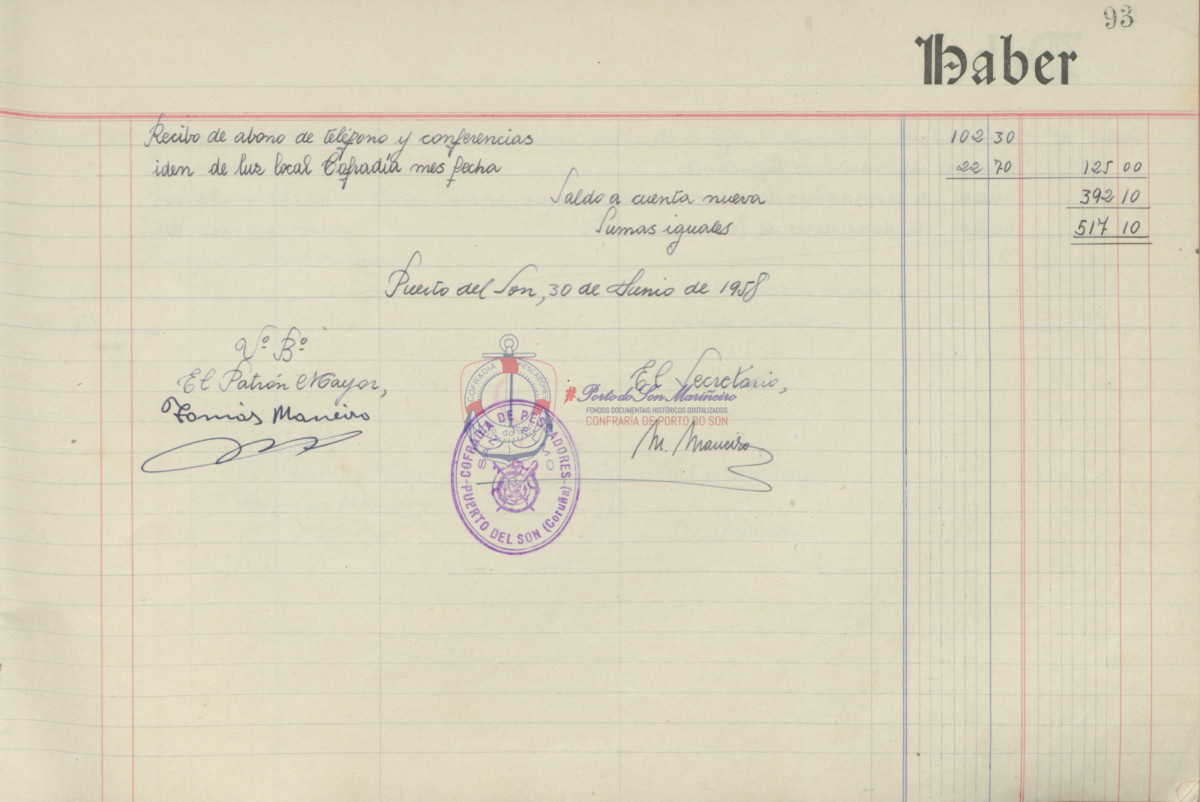 93
Haber
Recibo de abono de teléfono y conferencias 102 30
iden de luz local Cofradía mes fecha 22 70 125 00
Saldo a cuenta nueva 392 10
Sumas iguales 517 10
Puerto del Son, 30 de Junio de 1958
Vº Bº
El Patrón Mayor,
El Secretario,
Tomás Maneiro
M. Maneiro
COFRADÍA DE PESCADORES
PUERTO DEL SON (Coruña)
COFRADÍA PESCADORES
#Porto do Son Mariñeiro
FONDOS DOCUMENTAIS HISTÓRICOS DIXITALIZADOS
CONFRARÍA DE PORTO DO SON